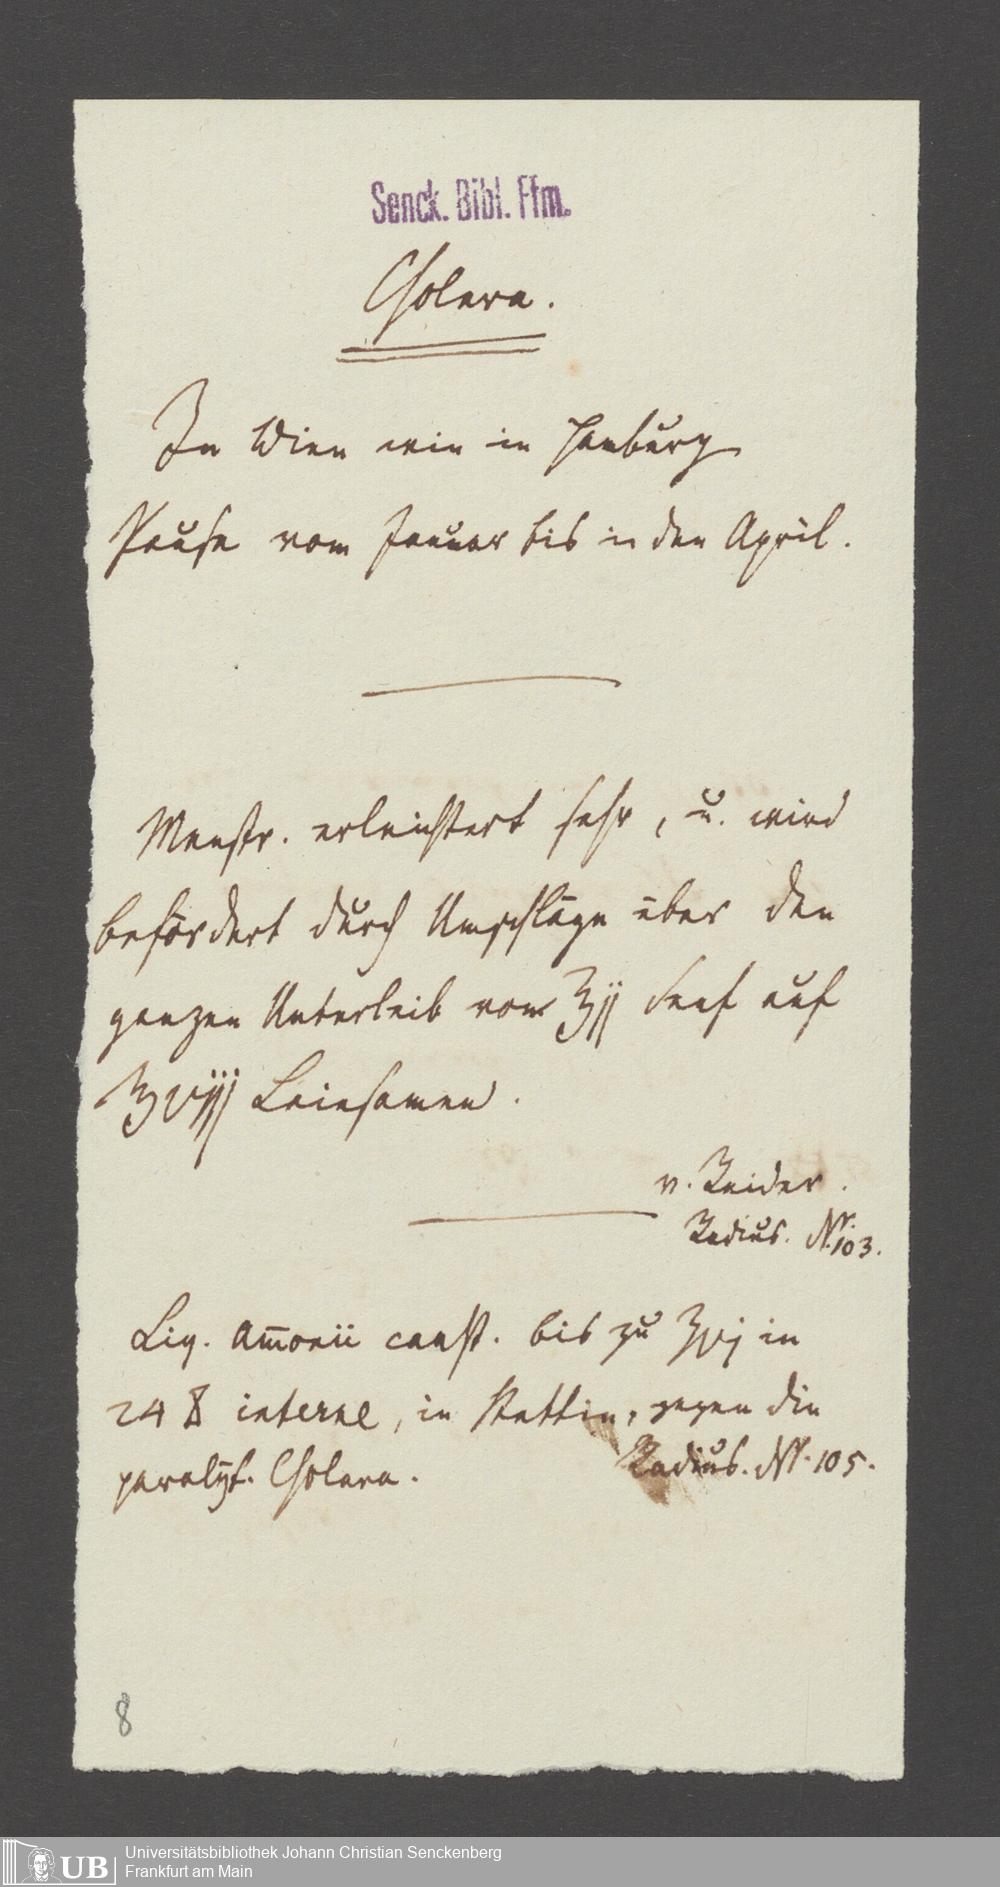 Senck. Bibl. Ffm.
Cholera.
In Wien wie in Hamburg
Pause vom Januar bis in den April.
Menstr. erleichtert sehr, u. wird
befördert durch Umschläge über den
ganzen Unterleib von ℥ij Senf auf
℥viij Leinsamen.
v. Reider.
Radius. Nr. 103.
Liq. Am̅onii caust. bis zu ʒvj in
24 interne, in Stettin, gegen die
paralyt. Cholera.
Radius. Nr. 105.
8
UB
Universitätsbibliothek Johann Christian Senckenberg
Frankfurt am Main